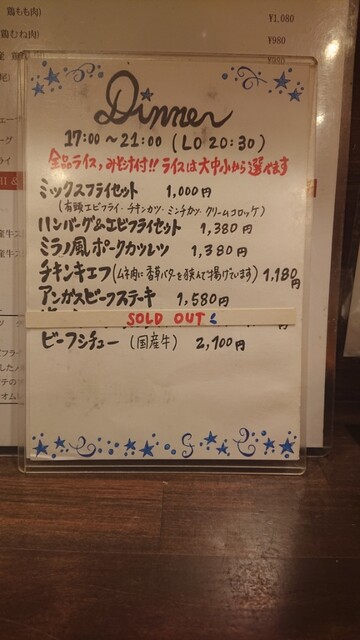 鶏もも肉)
¥1,080
鶏むね肉)
¥980
Dinner
17:00 〜 21:00 (LO 20:30)
全品ライス、みそ汁付!! ライスは大中小から選べます
ミックスフライセット 1,000円
(有頭エビフライ・チキンカツ・ミンチカツ・クリームコロッケ)
ハンバーグ&エビフライセット 1,380円
ミラノ風ポークカツレツ 1,380円
チキンキエフ(ムネ肉に香草バターを挟んで揚げています) 1,180円
アンガスビーフステーキ 1,580円
SOLD OUT
ビーフシチュー (国産牛) 2,100円